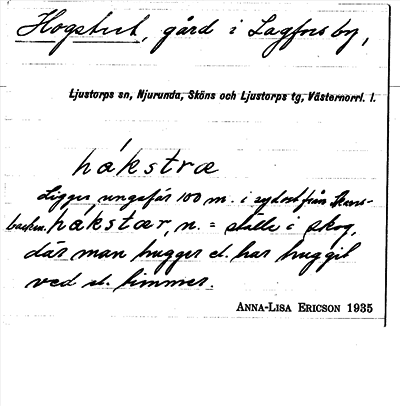 Hogstret, gård i Lagfors by,
Ljustorps sn, Njurunda, Sköns och Ljustorps tg, Västernorrl. l.
hákstræ
Ligger ungefär 100 m. i sydost från
backen. hákstær, n. = ställe i skog,
där man hugger el. har huggit
ved el. timmer.
ANNA-LISA ERICSON 1935